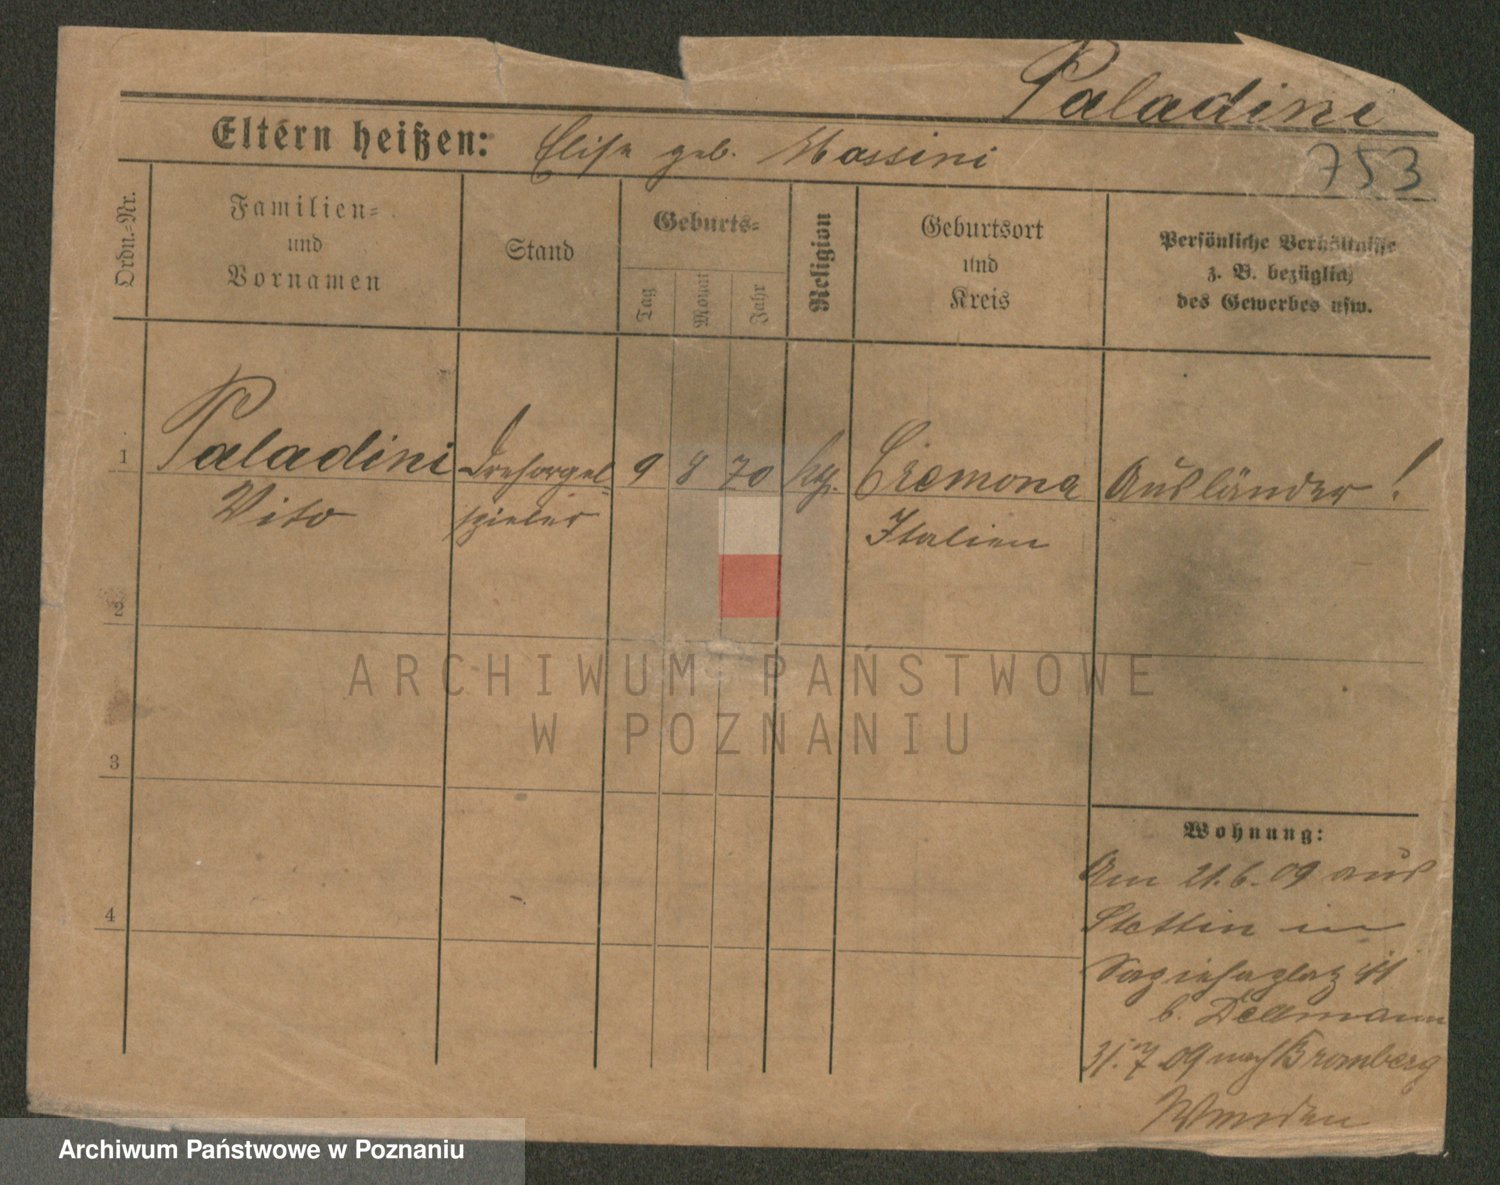 Paladini
Eltern heißen: Elisa geb. Massini
753
Ordn.-Nr.
Familien-
und
Vornamen
Stand
Geburts-
Tag
Monat
Jahr
Religion
Geburtsort
und
Kreis
Persönliche Verhältnisse
z. B. bezüglich
des Gewerbes usw.
1 Paladini Drehorgel- 9 8 70 kth. Cremona Ausländer!
Vito spieler Italien
2
3
4
Wohnung:
Am 21.6.09 aus
Stettin in
Sapiehaplatz 11
b. Dellmann
31.7 09 nach Bromberg
ARCHIWUM PAŃSTWOWE
W POZNANIU
Archiwum Państwowe w Poznaniu